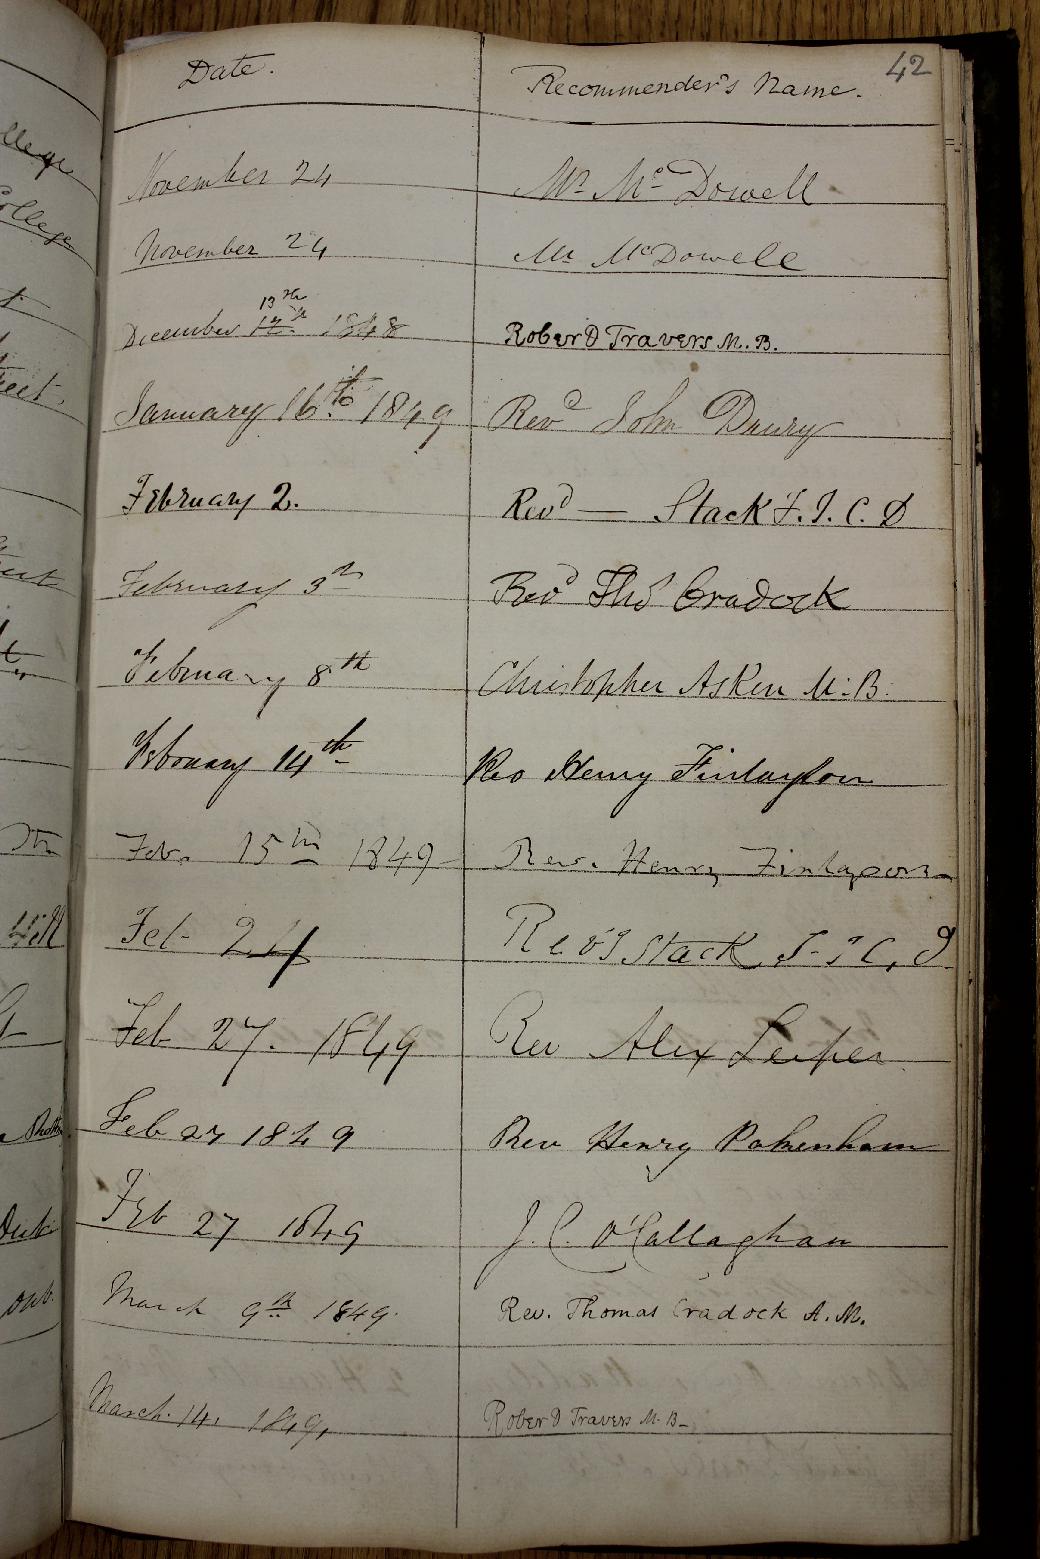 42
Date. Recommender's Name.
November 24 Mr. Mc Dowell
November 24 Mr McDowell
13th
December 12th 1848 Robert Travers M. B.
January 16th 1849 Revd John Drury
February 2. Revd — Stack F. T. C. D
February 3rd Revd Thos Cradock
February 8th Christopher Asken M. B.
February 14th Rev Henry Finlayson
Feb. 15th 1849 Rev. Henry Finlayson
Feb 24 Revd Stack F. T C. D
Feb 27. 1849 Rev Alex Leeper
Feb 27 1849 Rev Henry Pakenham
Feb 27 1849 J. C. O'Callaghan
March 9th 1849. Rev. Thomas Cradock A. M.
March. 14. 1849, Robert Travers M. B.